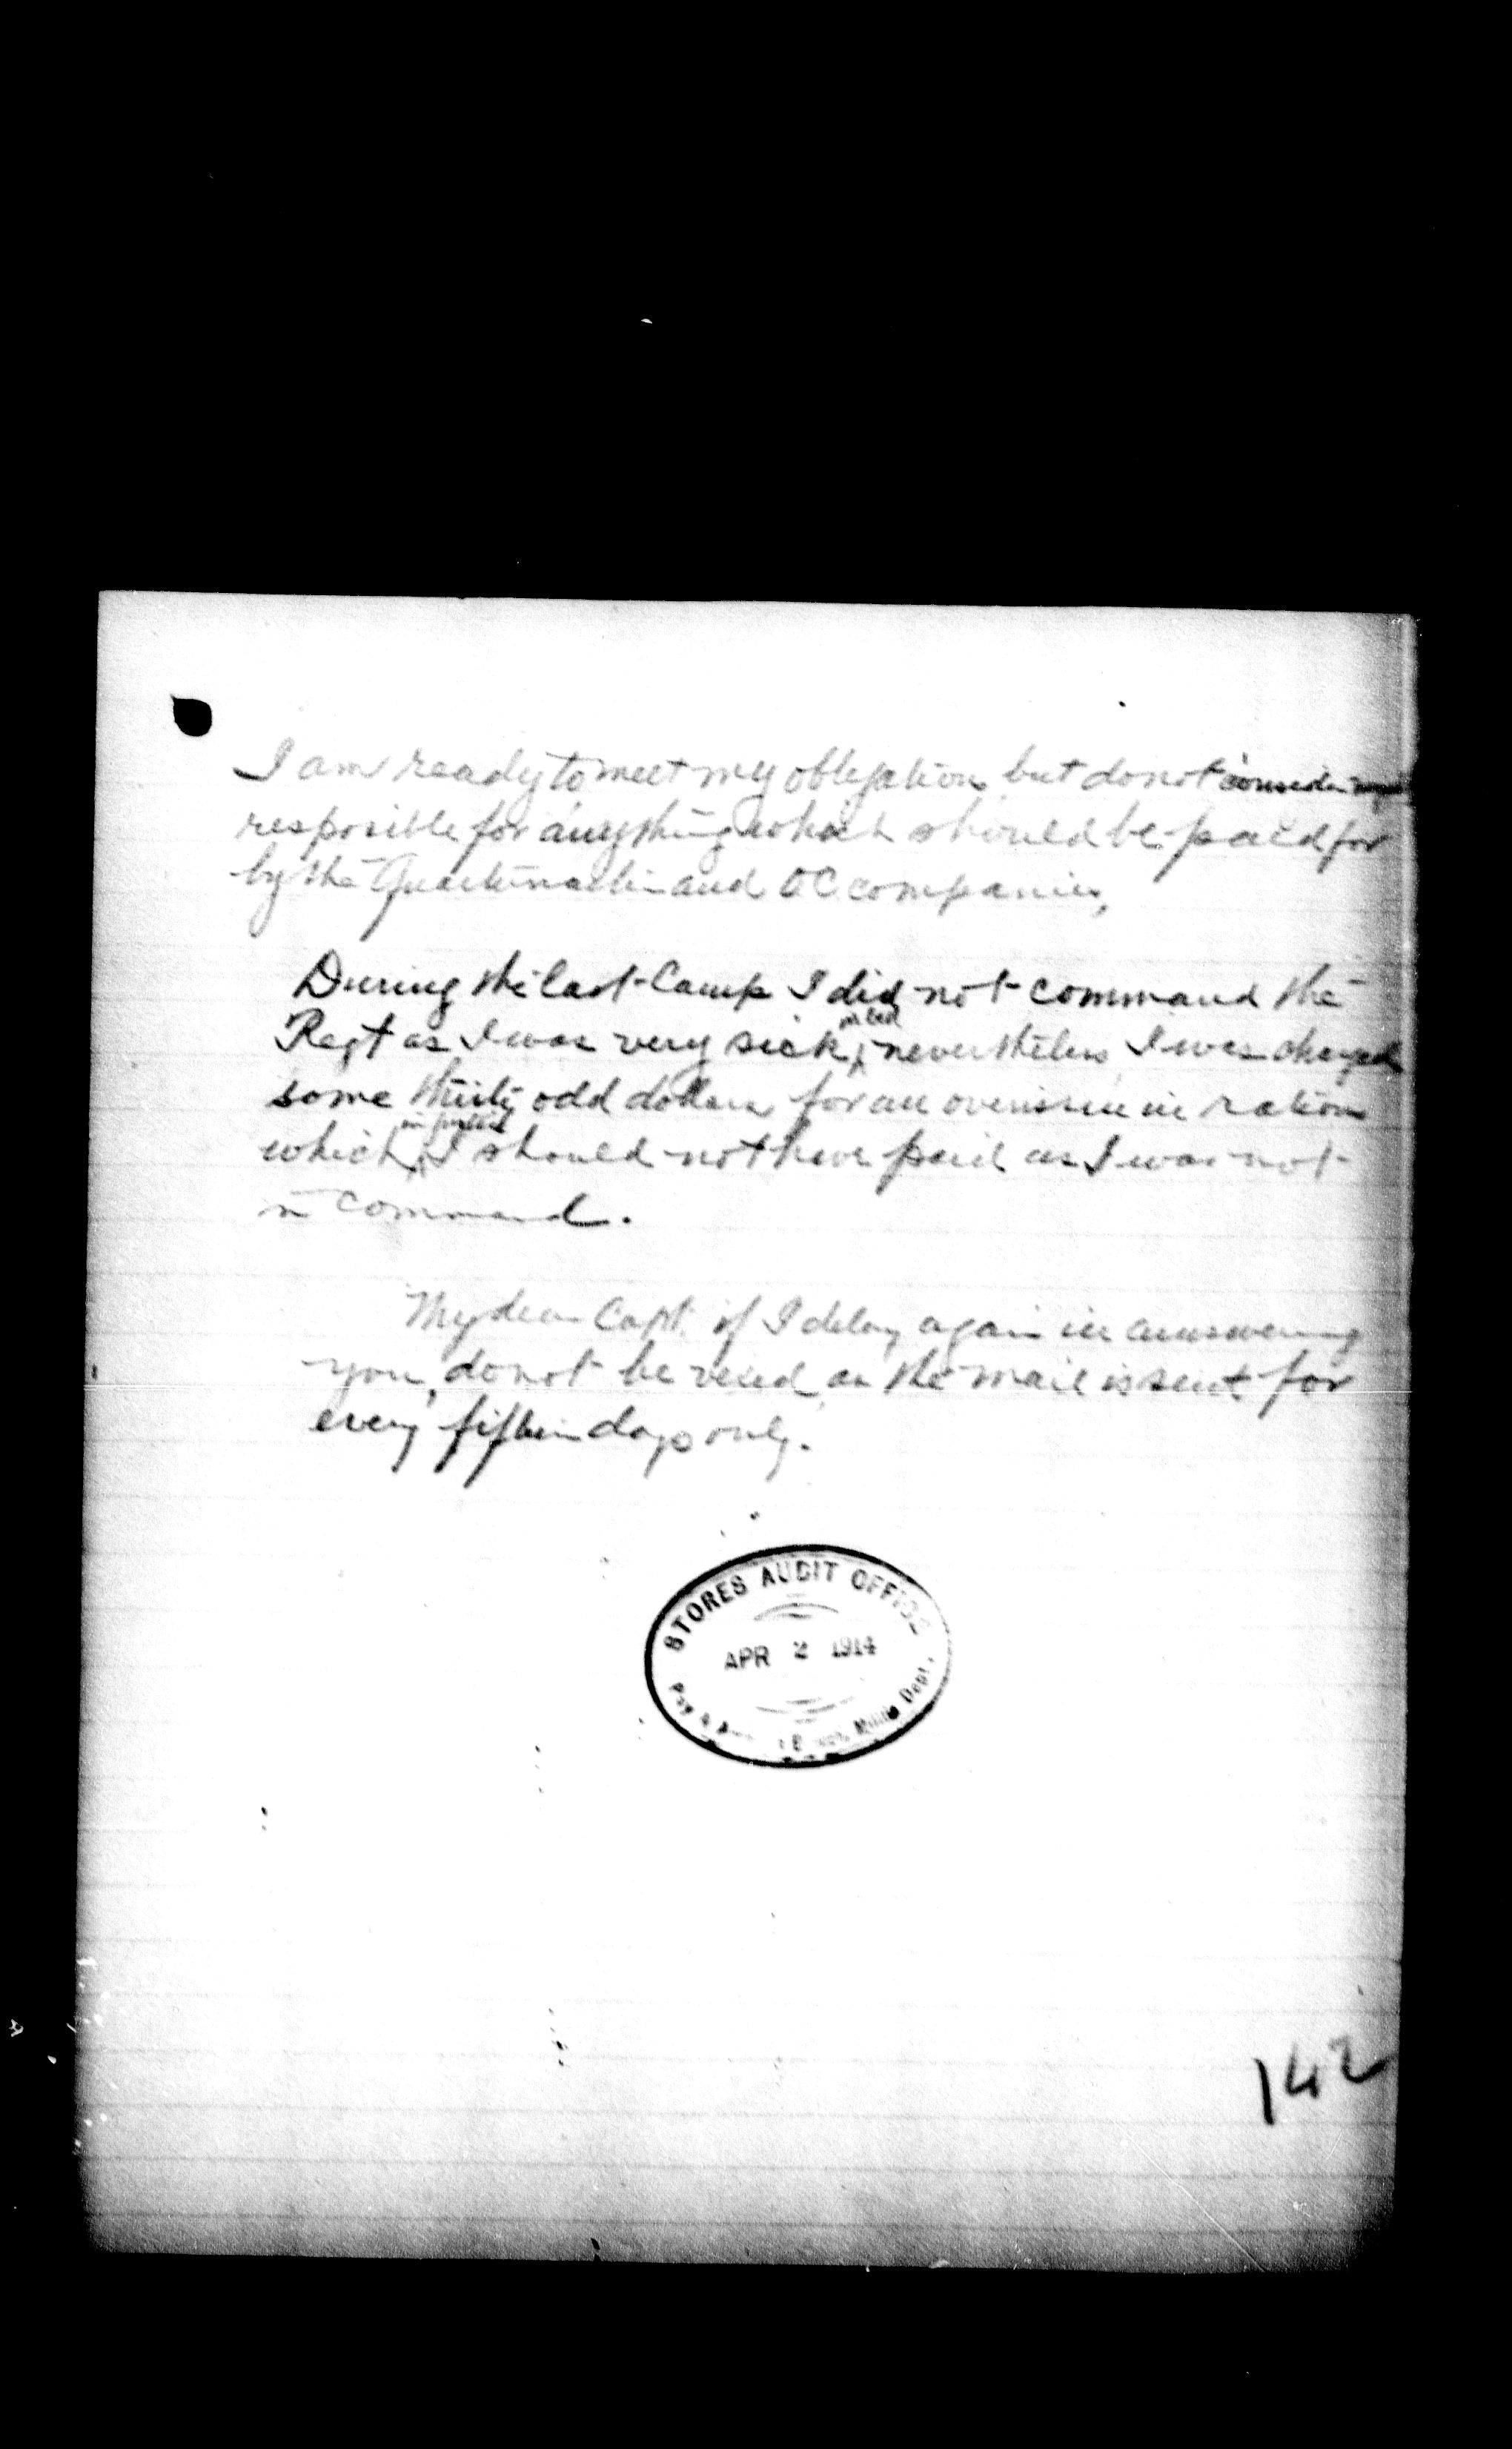 I am ready to meet my obligations but do not consider
resposible for anything which should be paid for
by the Quartermaster and OC companies,
During the last Camp I did not command the
in bed
Regt as I was very sick, nevertheless I was charged
some thirty odd dollars for an overissue in rations
which I should not have paid as I was not
in command.
My dear Capt. if I delay again in answering
you, do not be vexed as the mail is sent for
every fifteen days only.
STORES AUDIT OFFICE
APR 2 1914
Militia Dept.
142